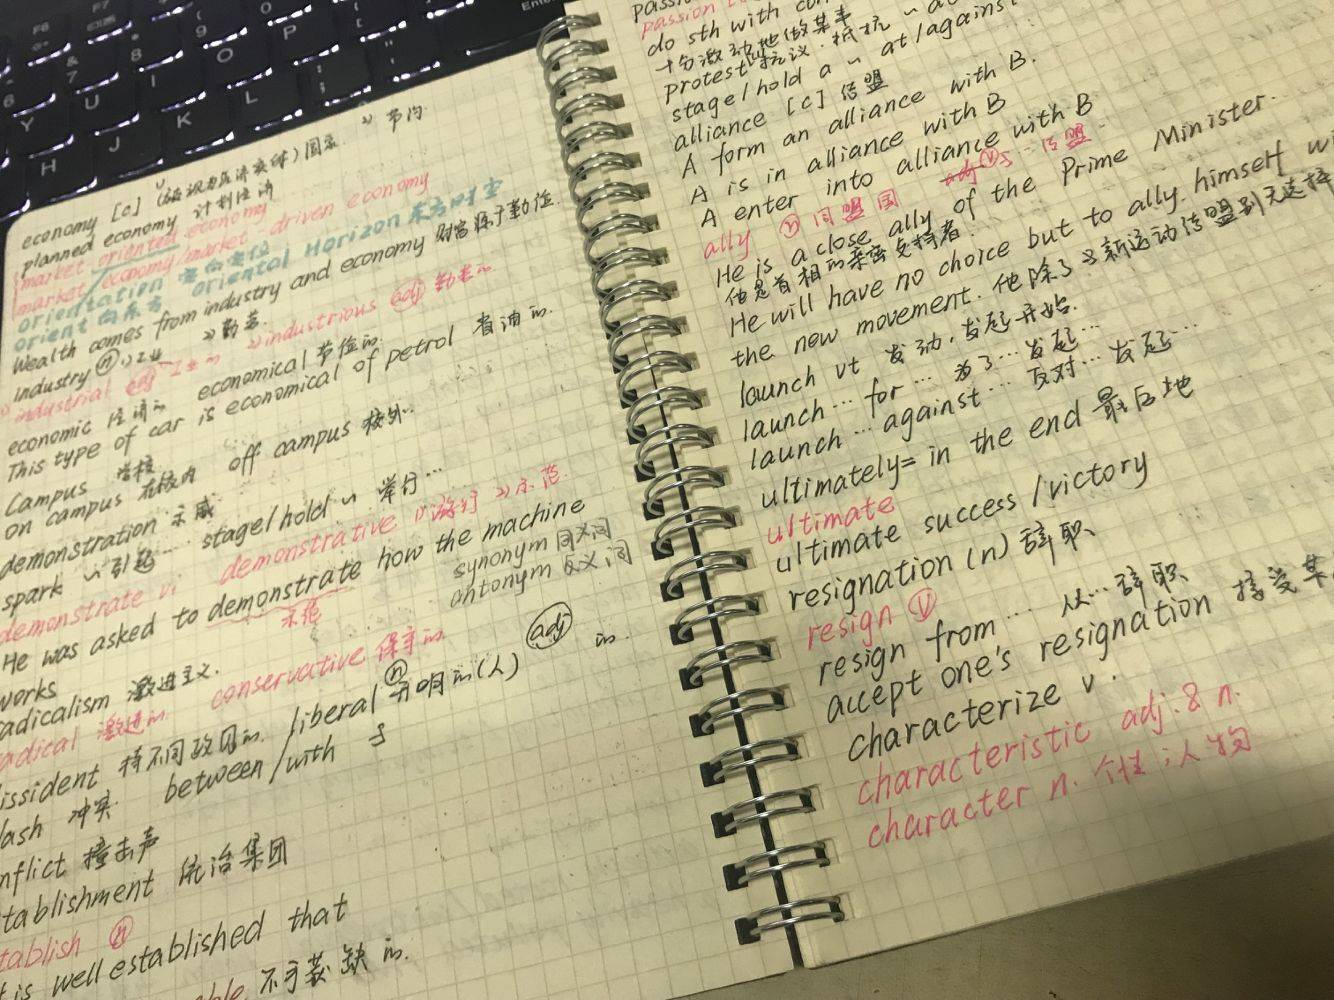 economy [c] 国家 2) 节约
planned economy 计划经济
market oriented economy
market economy/market driven economy
orientation 定向定位
orient 向东方 oriental Horizon 东方时空
Wealth comes from industry and economy 财富源于勤俭.
industry ⓝ 1) 工业 2) 勤劳.
industrial adj 工业的 2) industrious adj 勤劳的
economic 经济的 economical 节俭的
This type of car is economical of petrol 省油的
Campus 学校
on campus 在校内 off campus 校外
demonstration 示威
spark ~ 引起… stage/hold ~ 举行…
demonstrate vi demonstrative 1) 游行 2) 示范.
He was asked to demonstrate how the machine
示范
works
synonym 同义词
antonym 反义词
adicalism 激进主义.
adical 激进的. conservative 保守的
issident 持不同政见的. liberal ⓝ 开明的(人) adj 的
lash 冲突 between/with
nflict 撞击声
tablishment 统治集团
tablish ⓝ
is well established that
不可或缺的.
passion
do sth with
十分激动地做某事
protest 抗议. 抵抗
stage/hold a ~ at/against
alliance [c] 结盟
A form an alliance with B.
A is in alliance with B
A enter into alliance with B
ally ⓝ 同盟国 ⓥ 结盟
He is a close ally of the Prime Minister.
他是首相的亲密支持者.
He will have no choice but to ally himself
the new movement. 他除了与新运动结盟别无选择
launch vt 发动, 发起 开始.
launch… for … 为了…发起…
launch… against… 反对… 发起…
ultimately = in the end 最后地
ultimate
ultimate success /victory
resignation (n) 辞职
resign ⓥ
resign from… 从…辞职
accept one's resignation 接受某
characterize v.
characteristic adj. & n.
character n. 个性; 人物